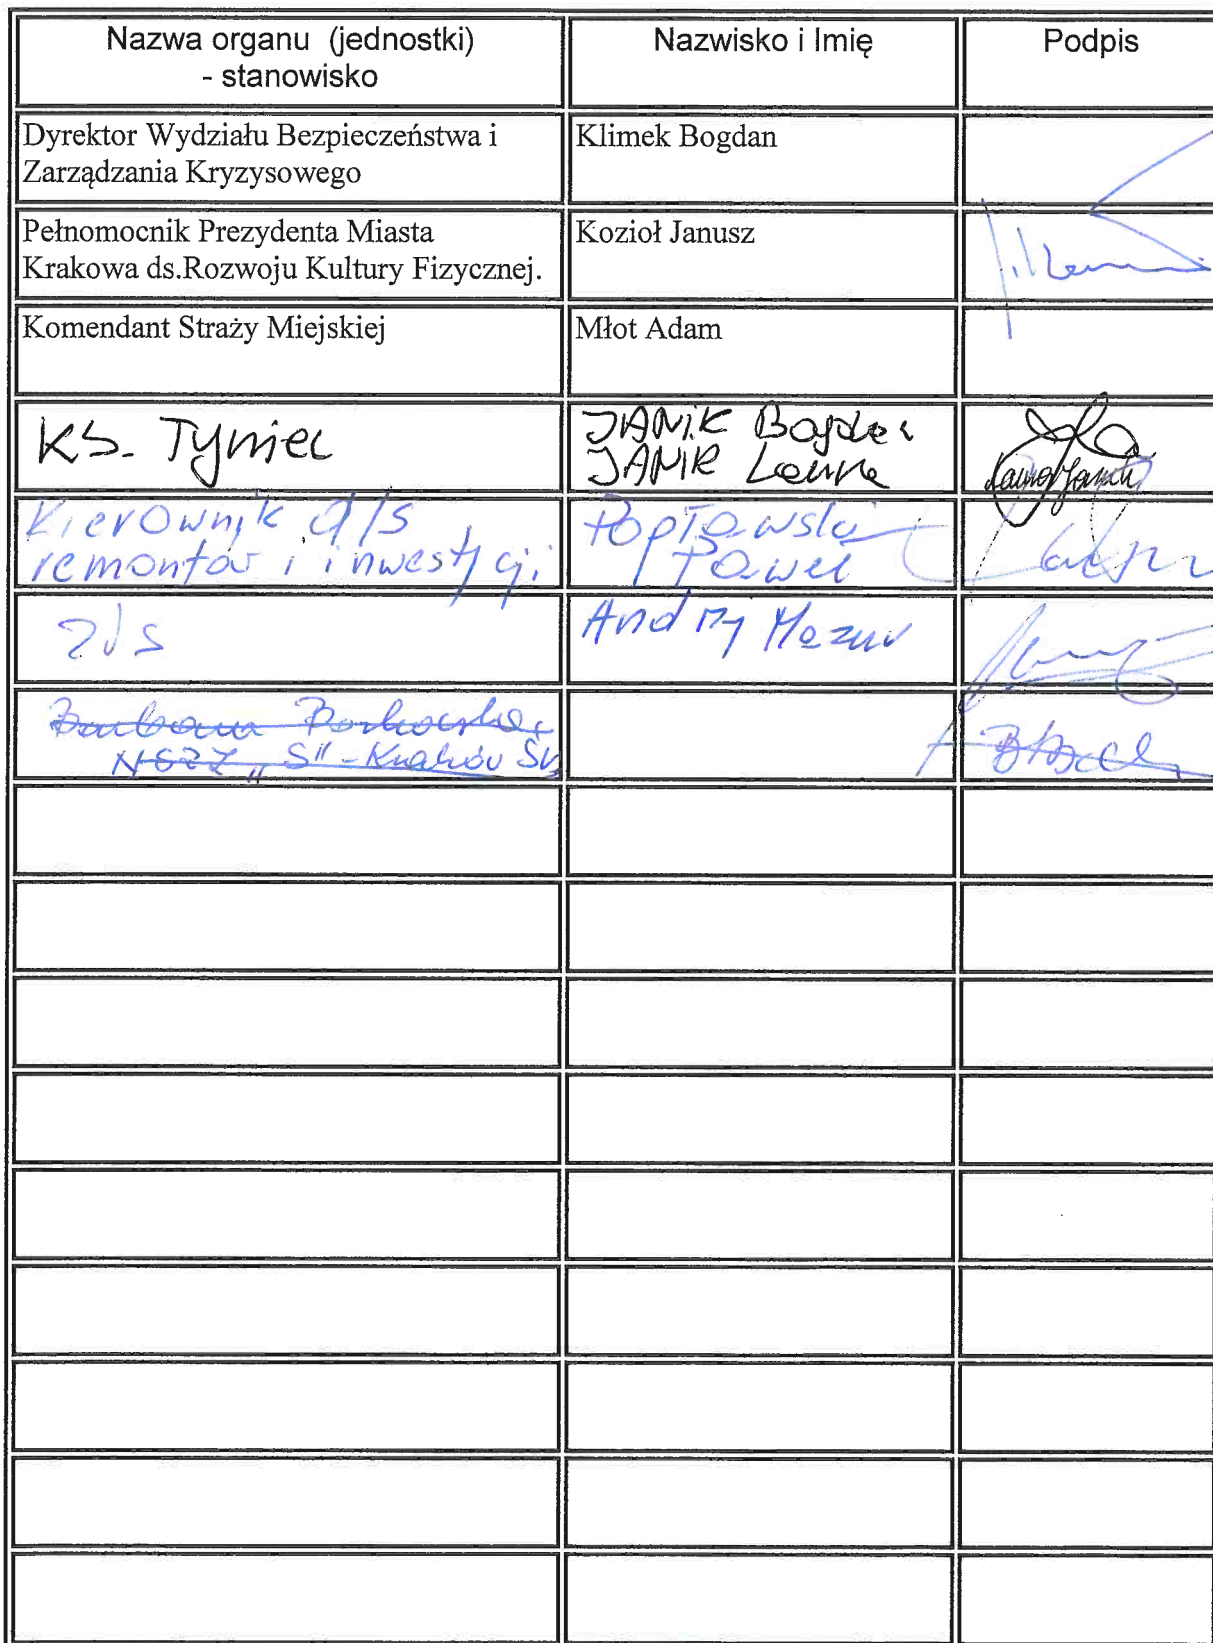 Nazwa organu (jednostki)
- stanowisko
Nazwisko i Imię
Podpis
Dyrektor Wydziału Bezpieczeństwa i
Zarządzania Kryzysowego
Klimek Bogdan
Pełnomocnik Prezydenta Miasta
Krakowa ds.Rozwoju Kultury Fizycznej.
Kozioł Janusz
Komendant Straży Miejskiej
Młot Adam
KS. Tyniec
JANIK Bogdan
JANIK Laura
Laura Janik
Kierownik d/s
remontów i inwestycji
Popławski
Paweł
ZIS
Andrzej Mazur
Barbara
NSZZ "S" - Kraków